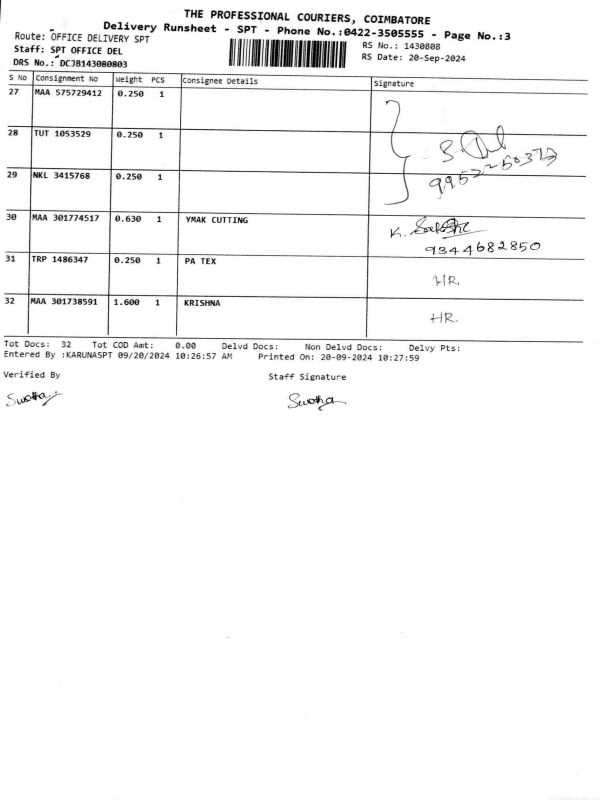 THE PROFESSIONAL COURIERS, COIMBATORE
Delivery Runsheet - SPT - Phone No.:0422-3505555 - Page No.:3
Route: OFFICE DELIVERY SPT
RS No.: 1430808
Staff: SPT OFFICE DEL
RS Date: 20-Sep-2024
DRS No.: DCJB143080803
S No Consignment No Weight PCS Consignee Details Signature
27 MAA 575729412 0.250 1
28 TUT 1053529 0.250 1
29 NKL 3415768 0.250 1
30 MAA 301774517 0.630 1 YMAK CUTTING K.
9344682850
31 TRP 1486347 0.250 1 PA TEX HR
32 MAA 301738591 1.600 1 KRISHNA HR
Tot Docs: 32 Tot COD Amt: 0.00 Delvd Docs: Non Delvd Docs: Delvy Pts:
Entered By :KARUNASPT 09/20/2024 10:26:57 AM Printed On: 20-09-2024 10:27:59
Verified By Staff Signature